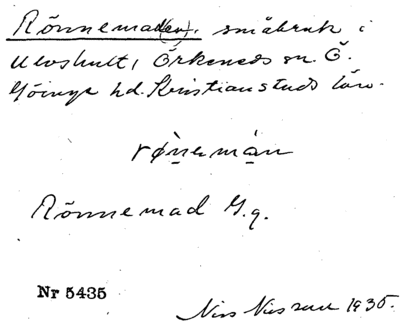 Rönnemad(en), småbruk i
Ulvshult, Örkeneds sn. Ö.
Göinge hd. Kristianstads län.
rø̀nərmàn
Rönnemad G.g.
Nr 5435
Nils Nilsson 1935.